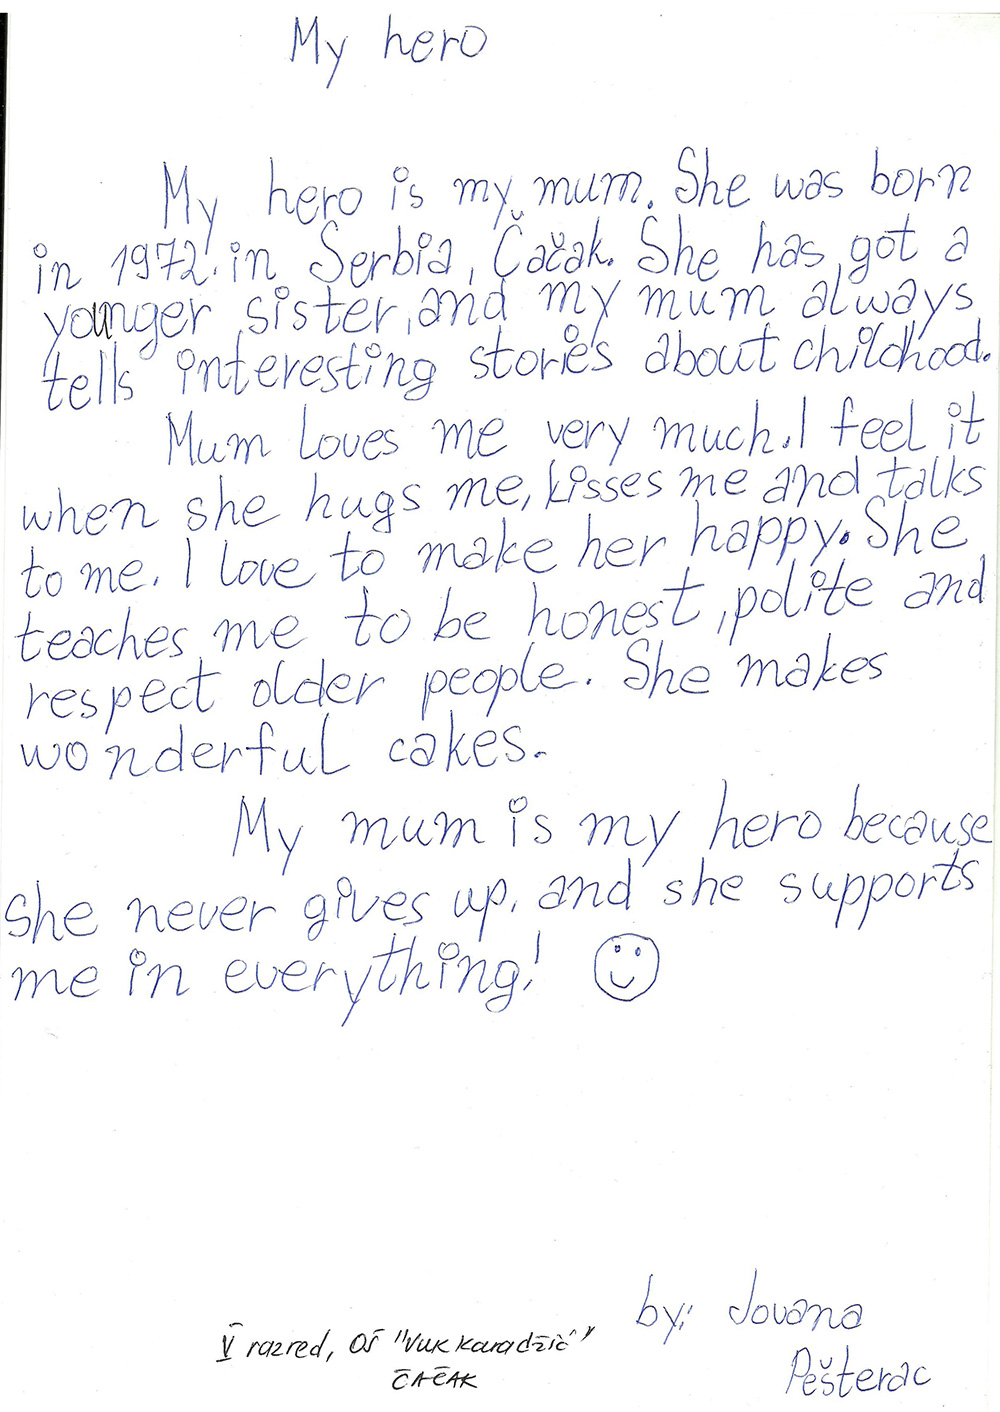 My hero
My hero is my mum. She was born
in 1972. in Serbia, Čačak. She has got a
younger sister, and my mum always
tells interesting stories about childhood.
Mum loves me very much. I feel it
when she hugs me, kisses me and talks
to me. I love to make her happy. She
teaches me to be honest, polite and
respect older people. She makes
wonderful cakes.
My mum is my hero because
she never gives up, and she supports
me in everything!
by: Jovana
Pešterac
V razred, OŠ "Vuk Karadžić"
ČAČAK